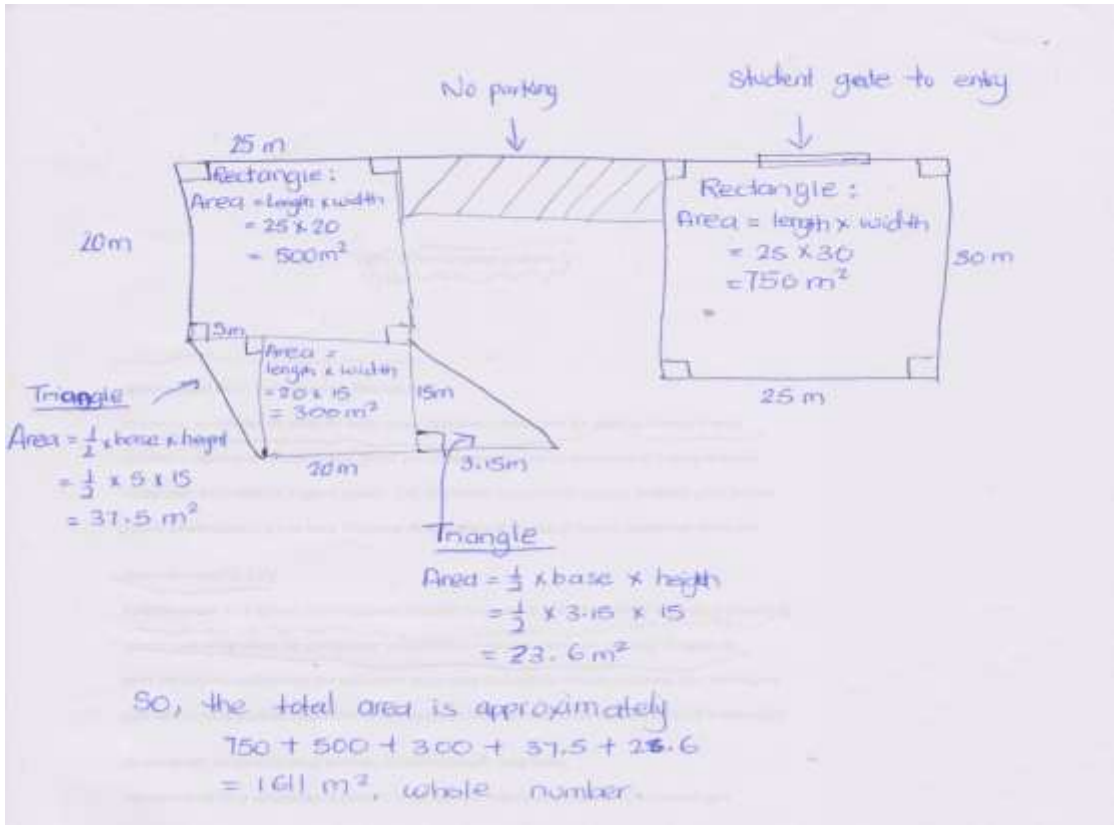 No parking
Student gate to entry
25 m
Rectangle:
Area = length x width
= 25 x 20
= 500m²
20m
Rectangle :
Area = length x width
= 25 x 30
= 750 m²
30 m
25 m
5m
Area =
length x width
= 20 x 15
= 300m²
15m
20m
3.15m
Triangle
Area = 1/2 x base x height
= 1/2 x 5 x 15
= 37.5 m²
Triangle
Area = 1/2 x base x heigth
= 1/2 x 3.15 x 15
= 23.6m²
So, the total area is approximately
750 + 500 + 300 + 37.5 + 23.6
= 1611 m², whole number.